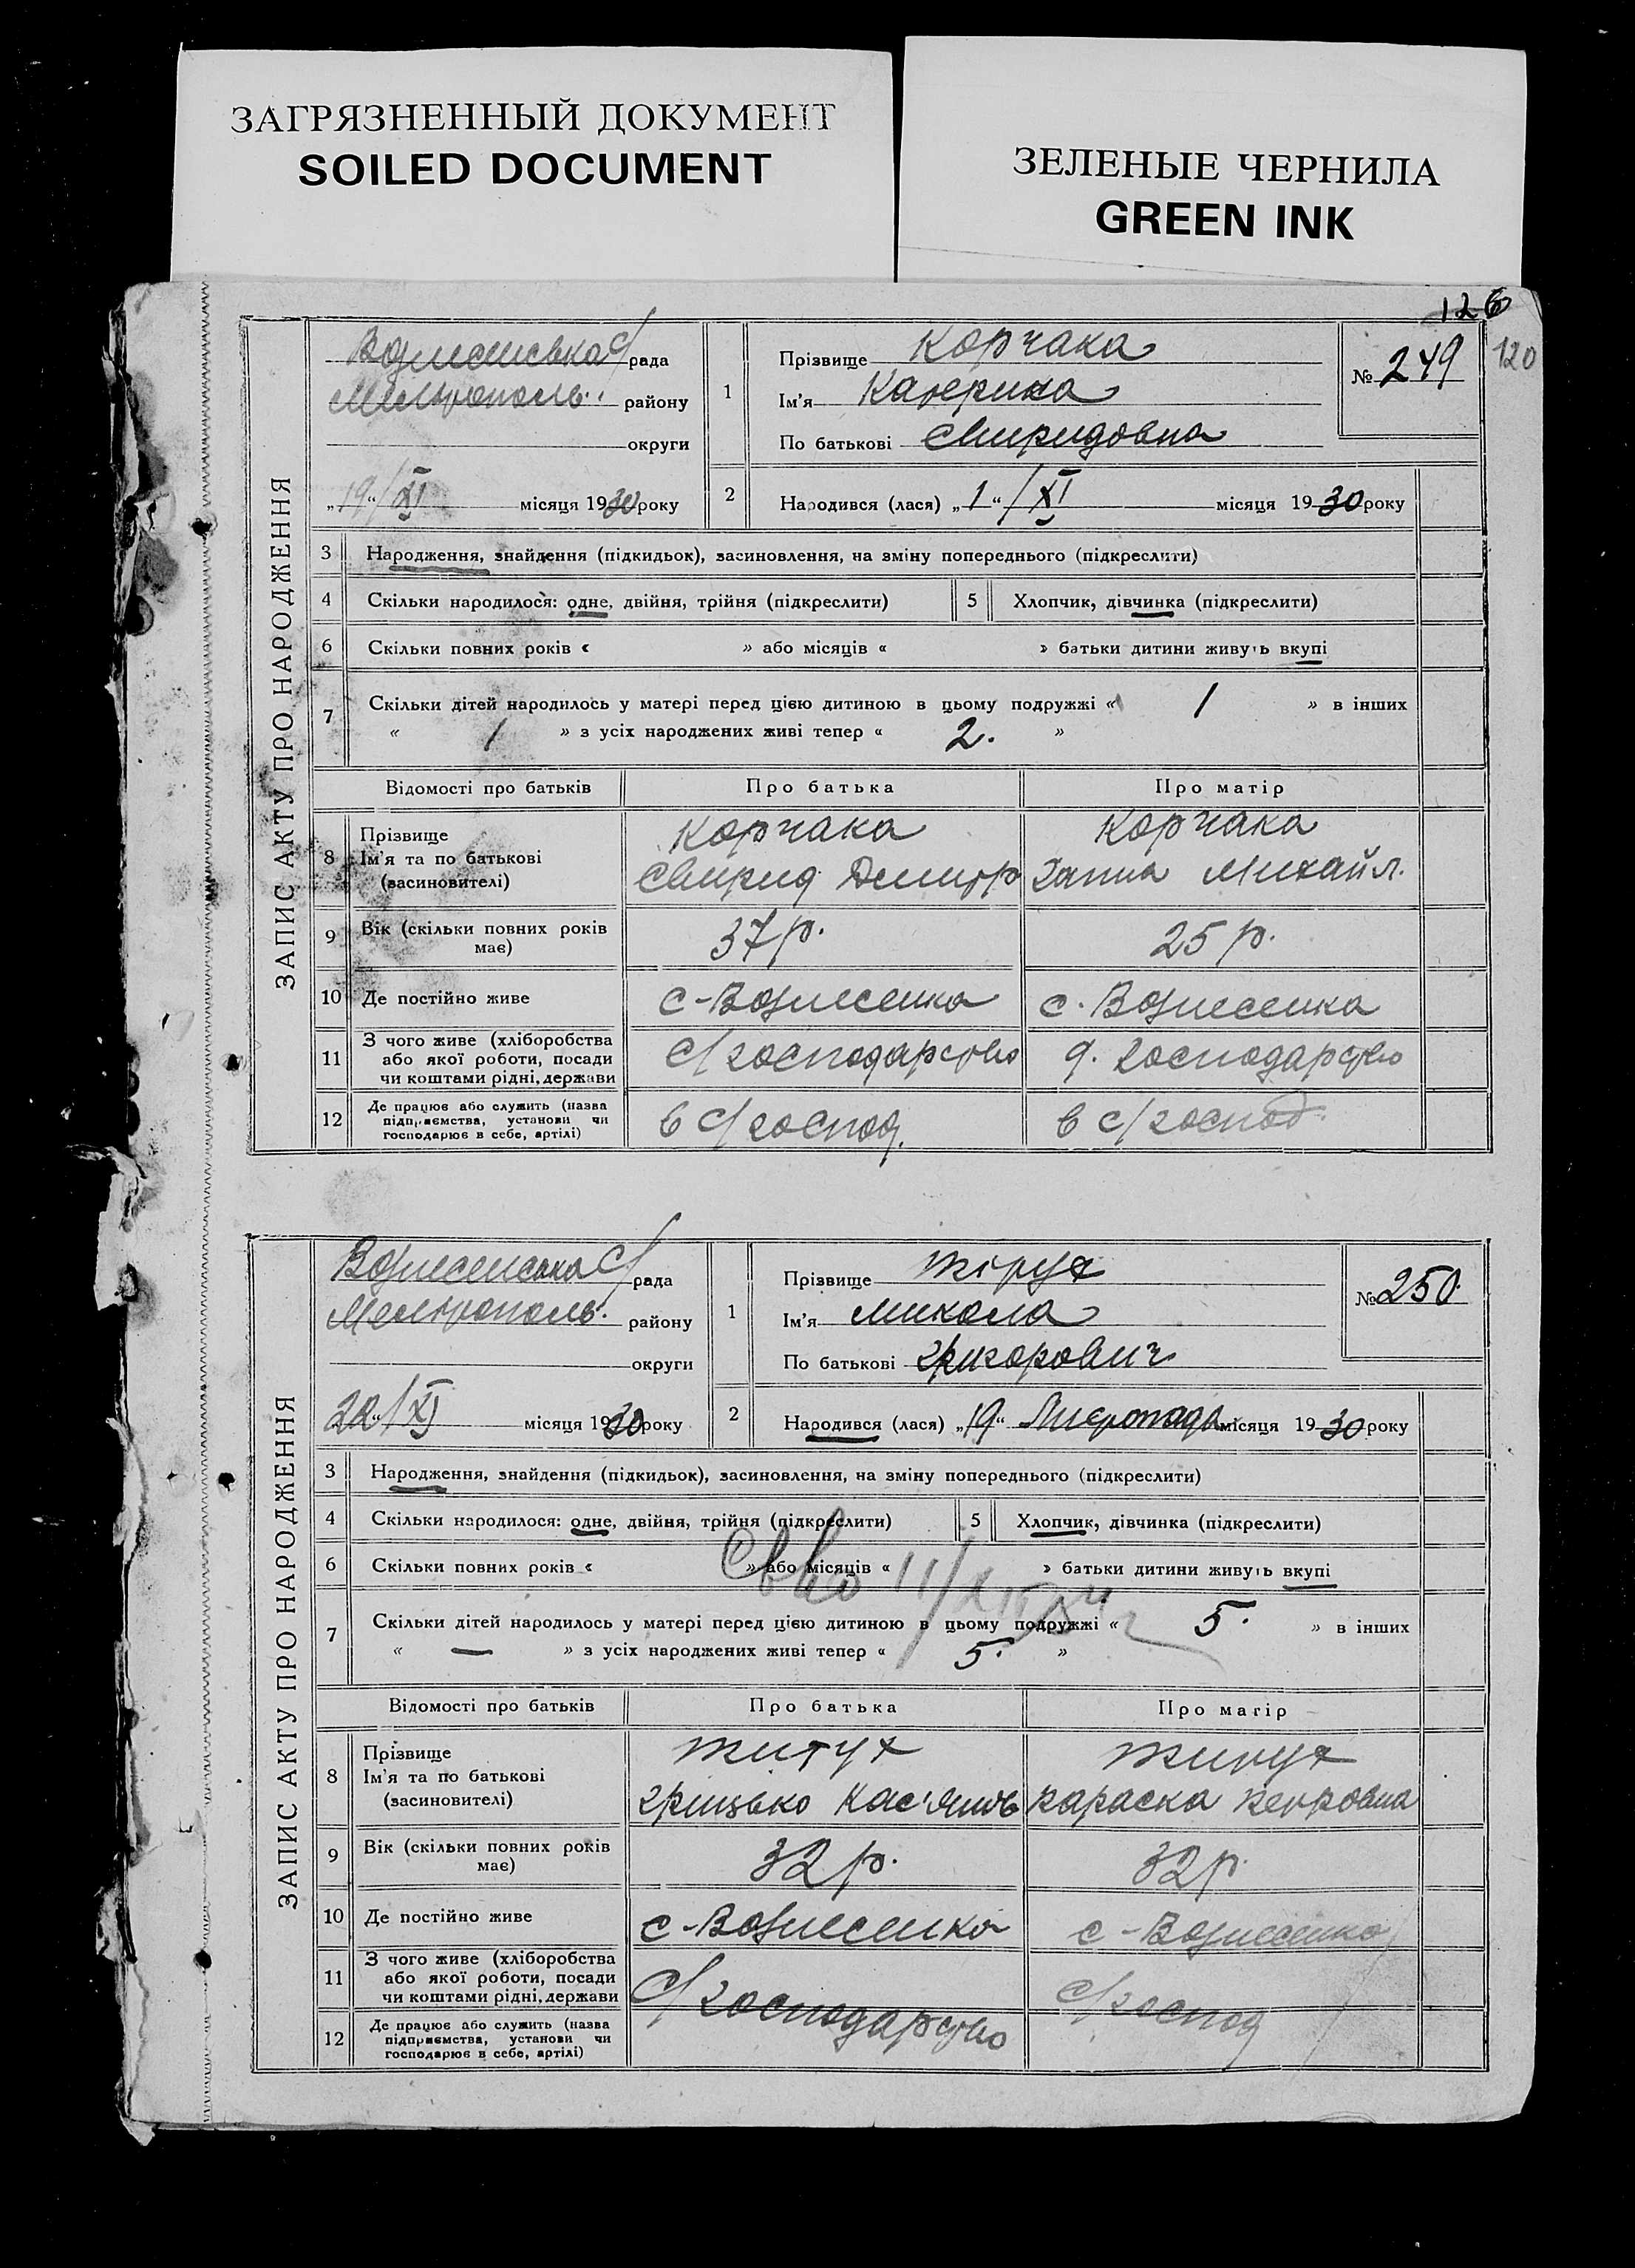 ЗАГРЯЗНЕННЫЙ ДОКУМЕНТ
SOILED DOCUMENT
ЗЕЛЕНЫЕ ЧЕРНИЛА
GREEN INK
126
120
ЗАПИС АКТУ ПРО НАРОДЖЕННЯ
Вознесенська с/рада
Мелітополь. району
округи
„19“/XI місяця 1930 року
1 Прізвище Корчака
Ім'я Катерина
По батькові Свиридовна
№ 249
2 Народився (лася) „1“/XI місяця 1930 року
3 Народження, знайдення (підкидьок), засиновлення, на зміну попереднього (підкреслити)
4 Скільки народилося: одне, двійня, трійня (підкреслити) 5 Хлопчик, дівчинка (підкреслити)
6 Скільки повних років « » або місяців « » батьки дитини живуть вкупі
7 Скільки дітей народилось у матері перед цією дитиною в цьому подружжі « 1 » в інших
« 1 » з усіх народжених живі тепер « 2. »
Відомості про батьків Про батька Про матір
8 Прізвище Корчака Корчака
Ім'я та по батькові Свирид Дмитр Ганна Михайл.
(засиновителі)
9 Вік (скільки повних років має) 37 р. 25 р.
10 Де постійно живе с-Вознесенка с. Вознесенка
11 З чого живе (хліборобства або якої роботи, посади чи коштами рідні, держави с/господарство д. господарство
12 Де працює або служить (назва підприємства, установи чи господарює в себе, артілі) в с/господ. в с/господ.
ЗАПИС АКТУ ПРО НАРОДЖЕННЯ
Вознесенська с/рада
Мелітополь. району
округи
„22“/XI місяця 1930 року
1 Прізвище Жітух
Ім'я Микола
По батькові Григорович
№ 250.
2 Народився (лася) „19“ Листопада місяця 1930 року
3 Народження, знайдення (підкидьок), засиновлення, на зміну попереднього (підкреслити)
4 Скільки народилося: одне, двійня, трійня (підкреслити) 5 Хлопчик, дівчинка (підкреслити)
6 Скільки повних років « » або місяців « » батьки дитини живуть вкупі
7 Скільки дітей народилось у матері перед цією дитиною в цьому подружжі « 5. » в інших
« — » з усіх народжених живі тепер « 5. »
Відомості про батьків Про батька Про матір
8 Прізвище Житух Житух
Ім'я та по батькові Грицько Кас'янов Параска Петровна
(засиновителі)
9 Вік (скільки повних років має) 32 р. 32 р.
10 Де постійно живе с-Вознесенка с-Вознесенка
11 З чого живе (хліборобства або якої роботи, посади чи коштами рідні, держави с/господарство с/господ
12 Де працює або служить (назва підприємства, установи чи господарює в себе, артілі)